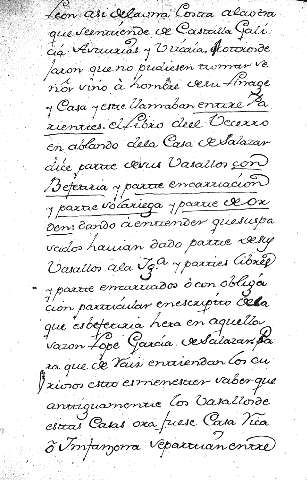 Leon asi de la una Costa a la otra
que se entiende de Castilla Gali
cia Asturias y Vizcaia. otros de
jaron que no pudiesen tomar se
ñor sino à hombre de su linage
y Casa y estre llamaban entre Pa
rientes. el Libro de el Vecerro
en ablando de la Casa de Salazar
dice partte de sus Vasallos son
Beftria y partte encartacion
y partte solariega y partte de or
den. dando à entender que sus pa
sados havian dado partte de sus
Vasallos a la Ygª y parttes libres
y partte encarttados ò con obliga
cion particular en escriptto de la
que es befetria hera en aquella
sazon Lope Garcia de Salazar Pa
ra que de Vaiz entiendan los cu
riosos estto es menester saber que
antiguamentte los Vasallos de
estas Casas ora fuese Casa Vica
ò Infanzona se parttian entre